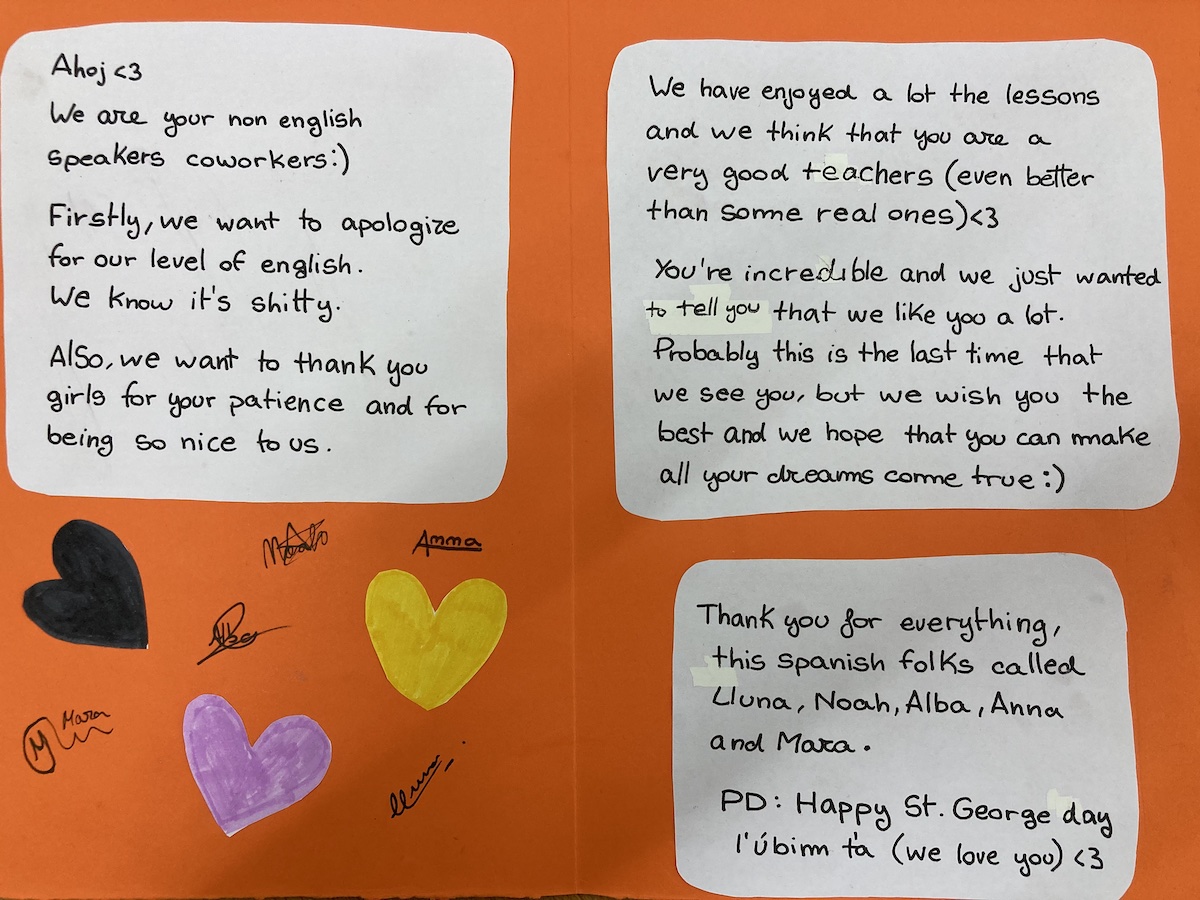 Ahoj <3
We are your non english
speakers coworkers:)
Firstly, we want to apologize
for our level of english.
We know it's shitty.
Also, we want to thank you
girls for your patience and for
being so nice to us.
Anna
Alba
Mara
M
Lluna
We have enjoyed a lot the lessons
and we think that you are a
very good teachers (even better
than some real ones)<3
You're incredible and we just wanted
to tell you that we like you a lot.
Probably this is the last time that
we see you, but we wish you the
best and we hope that you can make
all your dreams come true:)
Thank you for everything,
this spanish folks called
Lluna, Noah, Alba, Anna
and Mara.
PD: Happy St. George day
l'úbim ťa (we love you) <3